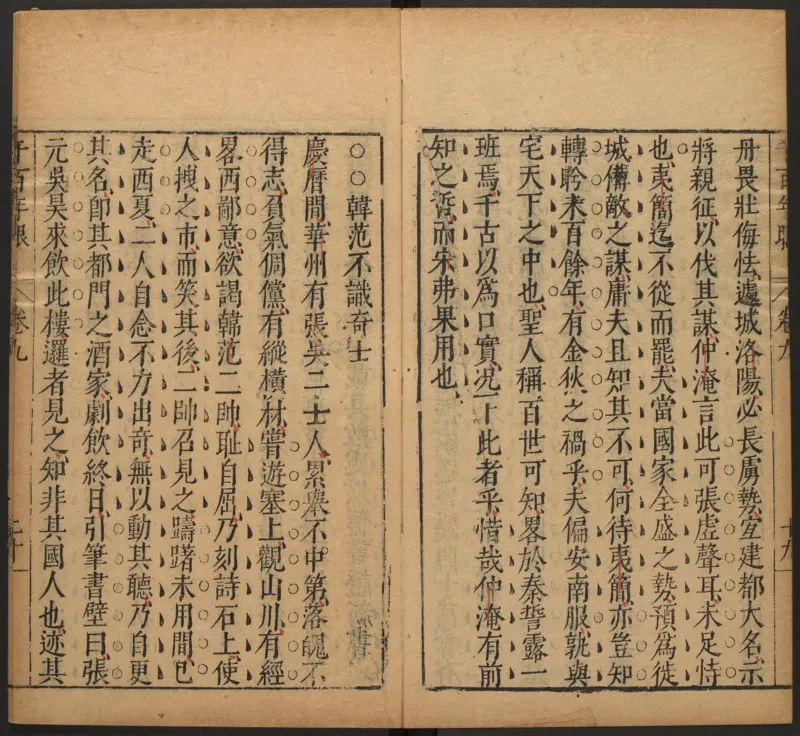 冊畏壯侮怯遽城洛陽必長虜勢宜建都大名示
將親征以伐其謀仲淹言此可張虛聲耳未足恃
也夷簡迄不從而罷夫當國家全盛之勢預為徙
城備敵之謀庸夫且知其不可何待夷簡亦豈知
轉盻未百餘年有金狄之禍乎夫偏安南服孰與
宅天下之中也聖人稱百世可知畧於秦誓露一
班焉千古以為口實況下此者乎惜哉仲淹有前
知之哲而宋弗果用也
千百年眼 卷九 十九
○○韓范不識奇士
慶曆間華州有張吳二士人累舉不中第落魄不
得志負氣倜儻有縱橫材嘗遊塞上觀山川有經
畧西鄙意欲謁韓范二帥恥自屈乃刻詩石上使
人拽之市而笑其後二帥召見之躊躇未用間已
走西夏二人自念不力出奇無以動其聽乃自更
其名即其都門之酒家劇飲終日引筆書壁曰張
元吳昊來飲此樓邏者見之知非其國人也迹其
千百年眼 卷九 二十